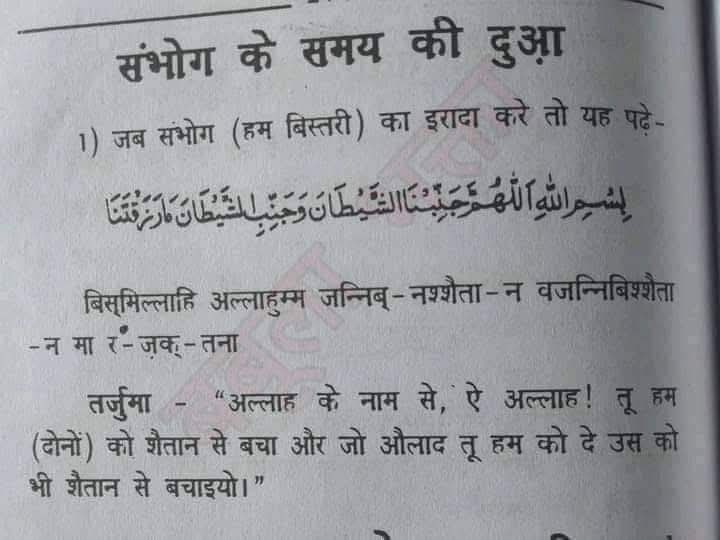 संभोग के समय की दुआ़
1) जब संभोग (हम बिस्तरी) का इरादा करे तो यह पढ़े-
بِسْمِ اللّٰهِ اَللّٰهُمَّ جَنِّبْنَا الشَّيْطَانَ وَجَنِّبِ الشَّيْطَانَ مَا رَزَقْتَنَا
बिस्मिल्लाहि अल्लाहुम्म जन्निब्-नश्शैता-न वजन्निबिश्शैता
-न मा र-ज़क्-तना
तर्जुमा - “अल्लाह के नाम से, ऐ अल्लाह! तू हम
(दोनों) को शैतान से बचा और जो औलाद तू हम को दे उस को
भी शैतान से बचाइयो।”